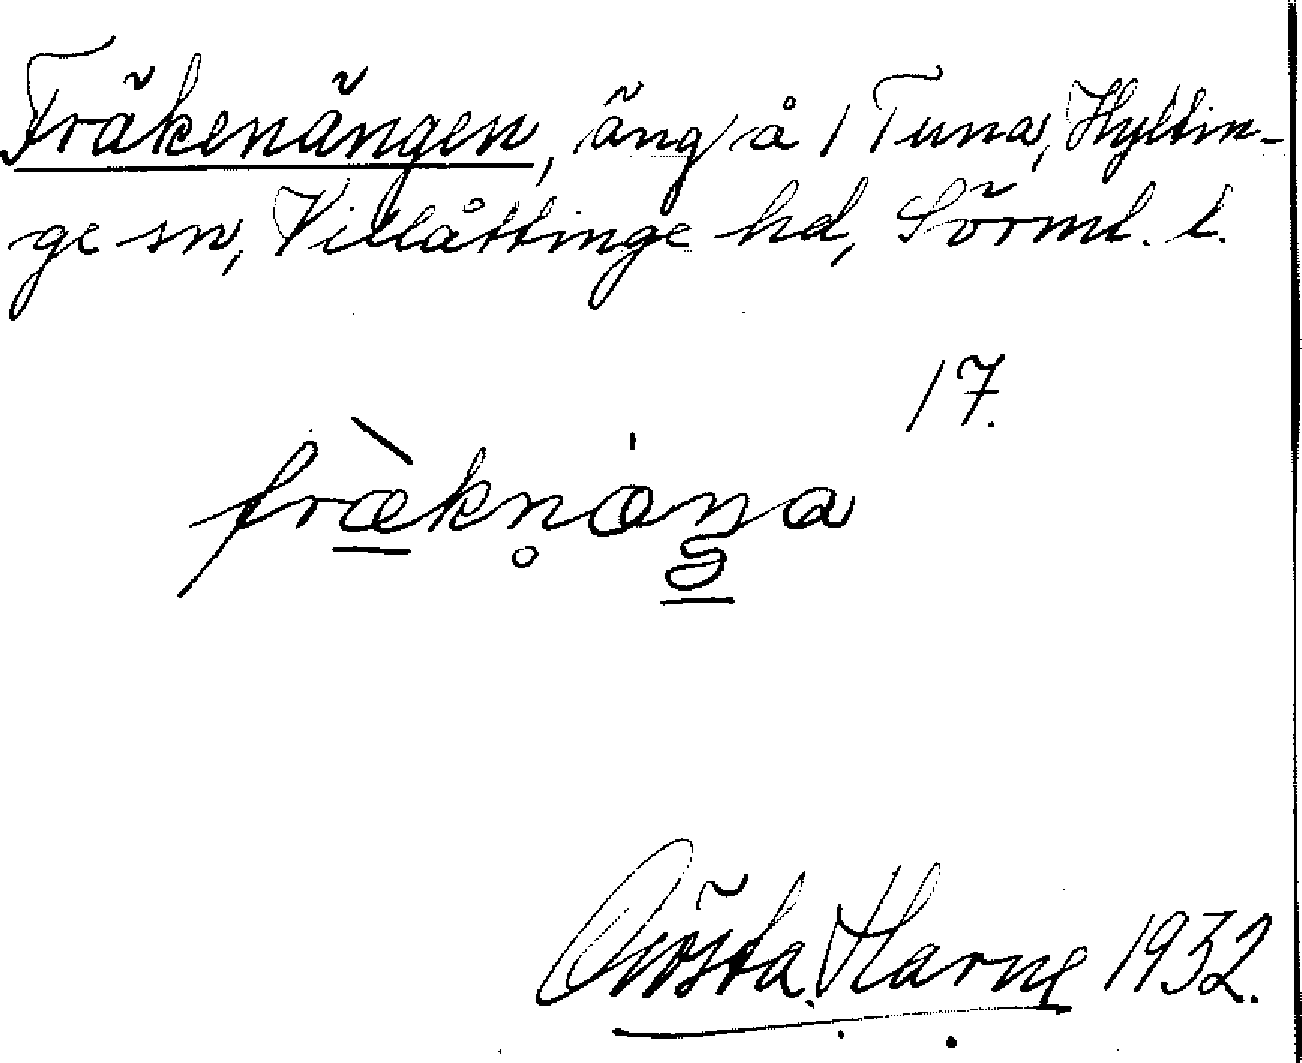 Fräkenängen, äng å 1 Tuna, Hyltin-
ge sn, Villåttinge hd, Sörml. l.
17.
Gösta Harne 1932.